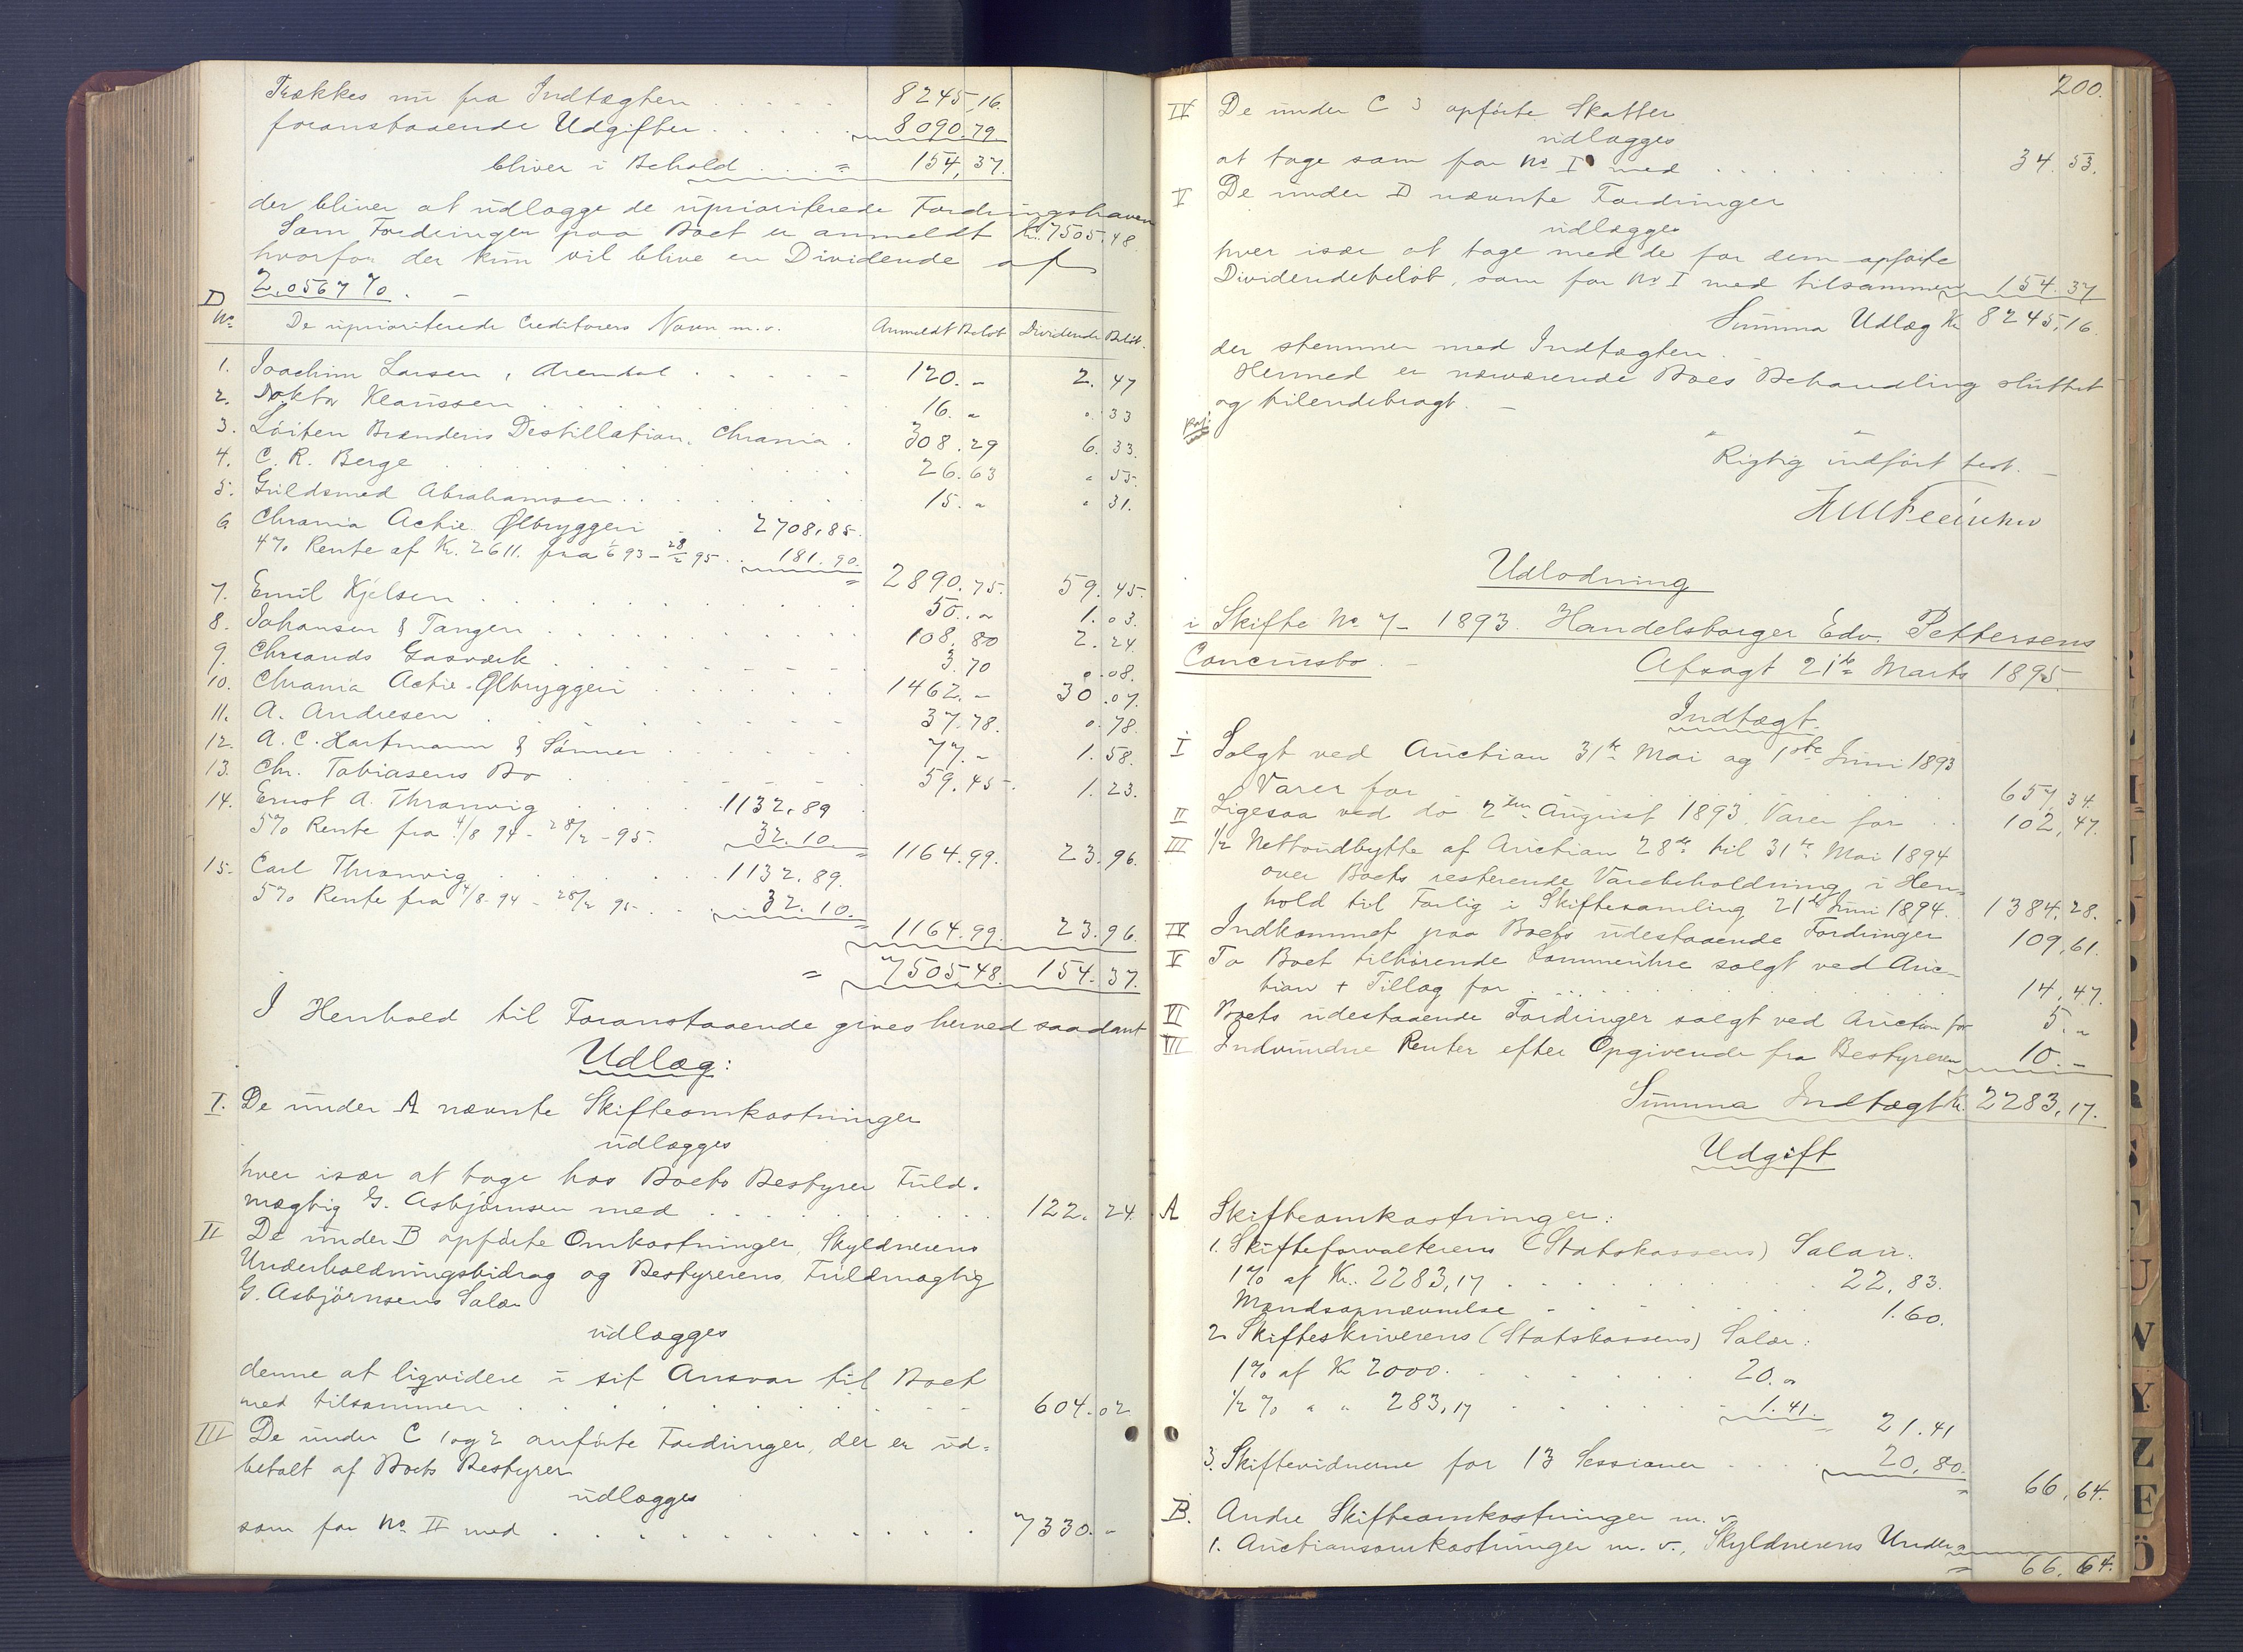 Trækkes nu fra Indtægten . . . . . 8245,16.
foranstaaende Udgifter . . . . . 8090.79.
bliver i Behold . . . = 154,37.
der bliver at udlægge de uprioriterede Fordringshavere
Som Fordringer paa Boet er anmeldt Kr. 7505.48
hvorfor der kun vil blive en Dividende af
2,0567 %. –
D
No. De uprioriterede Creditorers Navn m.v. Anmeldt Beløb Dividende Beløb.
1. Joachim Larsen, Arendal . . . . . 120.– 2.47
2. Doktor Klaussen . . . . . 16.„ 0.33
3. Löiten Brænderis Destillation, Chrania . 308.29 6.33.
4. C. R. Berge . . . . . 26.63 „ 55.
5. Guldsmed Abrahamsen . . . . . 15.„ „ 31.
6 Chrania Actie Ølbryggeri . . 2708,85.
4% Rente af Kr. 2611. fra 1/6 93 – 28/2 95 . . 181.90.
= 2890.75. 59.45.
7. Emil Kjelsen . . . . . 50.„ 1.03.
8. Johansen & Tangen . . . . . 108.80 2.24.
9. Chrsands Gasværk . . . . . 3.70 0.08.
10. Chrania Actie-Ølbryggeri . . . . . 1462.– 30.07.
11. A. Andresen . . . . . 37.78. 0.78.
12. A. C. Hartmann & Sönner . . . . . 77.– 1.58.
13. Chr. Tobiasens Bo . . . . . 59.45–. 1.23.
14. Ernst A. Thranvig . . . . 1132,89
5% Rente fra 4/8 94 – 28/2 – 95. 32.10.
= 1164.99. 23.96.
15. Carl Thranvig . . . . 1132.89.
5% Rente fra 4/8. 94 – 28/2 95 . . . 32.10.
1164.99. 23.96.
= 7505.48. 154.37.
I Henhold til Foranstaaende gives herved saadant
Udlæg:
I. De under A nævnte Skifteomkostninger
udlægges
hver især at tage hos Boets Bestyrer Fuld-
mægtig G. Asbjörnsen med . . . . . 122.24.
II De under B opførte Omkostninger, Skyldnerens
Underholdningsbidrag og Bestyrerens, Fuldmægtig
G. Asbjörnsens Salær
udlægges
denne at liqvidere i sit Ansvar til Boet
med tilsammen . . . . . 604.02
III De under C 1 og 2 anførte Fordringer, der er ud-
betalt af Boets Bestyrer
udlægges
som for No. II med . . . . . 7330.–
200.
IV De under C 3 opførte Skatter
udlægges
at tage som for No I med . . . . . 34.53.
V De under D nævnte Fordringer
udlægges
hver især at tage med de for dem opførte
Dividendebeløb, som for No I med tilsammen 154.37
Summa Udlæg Kr 8245,16.
der stemmer med Indtægten.
Hermed er nærværende Boes Behandling sluttet
og tilendebragt. –
Rigtig indført test. –
Udlodning
i Skifte No. 7 – 1893. Handelsborger Edv. Pettersens
Concursbo. – Afsagt 21de Marts 1895.
Indtægt.
I Solgt ved Auction 31te Mai og 1ste Juni 1893
Varer for . . . . . 657,34.
II Ligesaa ved do 2den August 1893. Varer for . . 102,47.
III 1/2 Nettoudbytte af Auction 28de til 31te Mai 1894
over Boets resterende Varebeholdning, i Hen-
hold til Forlig i Skiftesamling 21de Juni 1894. 1384,28.
IV Indkommet paa Boets udestaaende Fordringer 109,61.
V To Boet tilhørende Kammerthre solgt ved Auc-
tion + Tillæg for . . . . . 14,47.
VI Boets udestaaende Fordringer solgt ved Auction for 5.„
VII Indvundne Renter efter Opgivende fra Bestyreren 10.–
Summa Indtægt Kr. 2283,17.
Udgift
A Skifteomkostninger:
1. Skifteforvalterens (Statskassens) Salær:
1% af Kr. 2283,17 . . . . . 22,83.
Mandsopnævnelse . . . . . 1.60.
2. Skifteskriverens (Statskassens) Salær:
1% af Kr 2000. . . . . . 20.„
1/2 % „ „ 283,17 . . . . . 1.41.
= 21.41
3. Skiftevidnerne for 13 Sessioner . . . . 20,80.
= 66,64.
B. Andre Skifteomkostninger m. v.
1. Auctionsomkostninger m. v., Skyldnerens Under-
= 66,64.